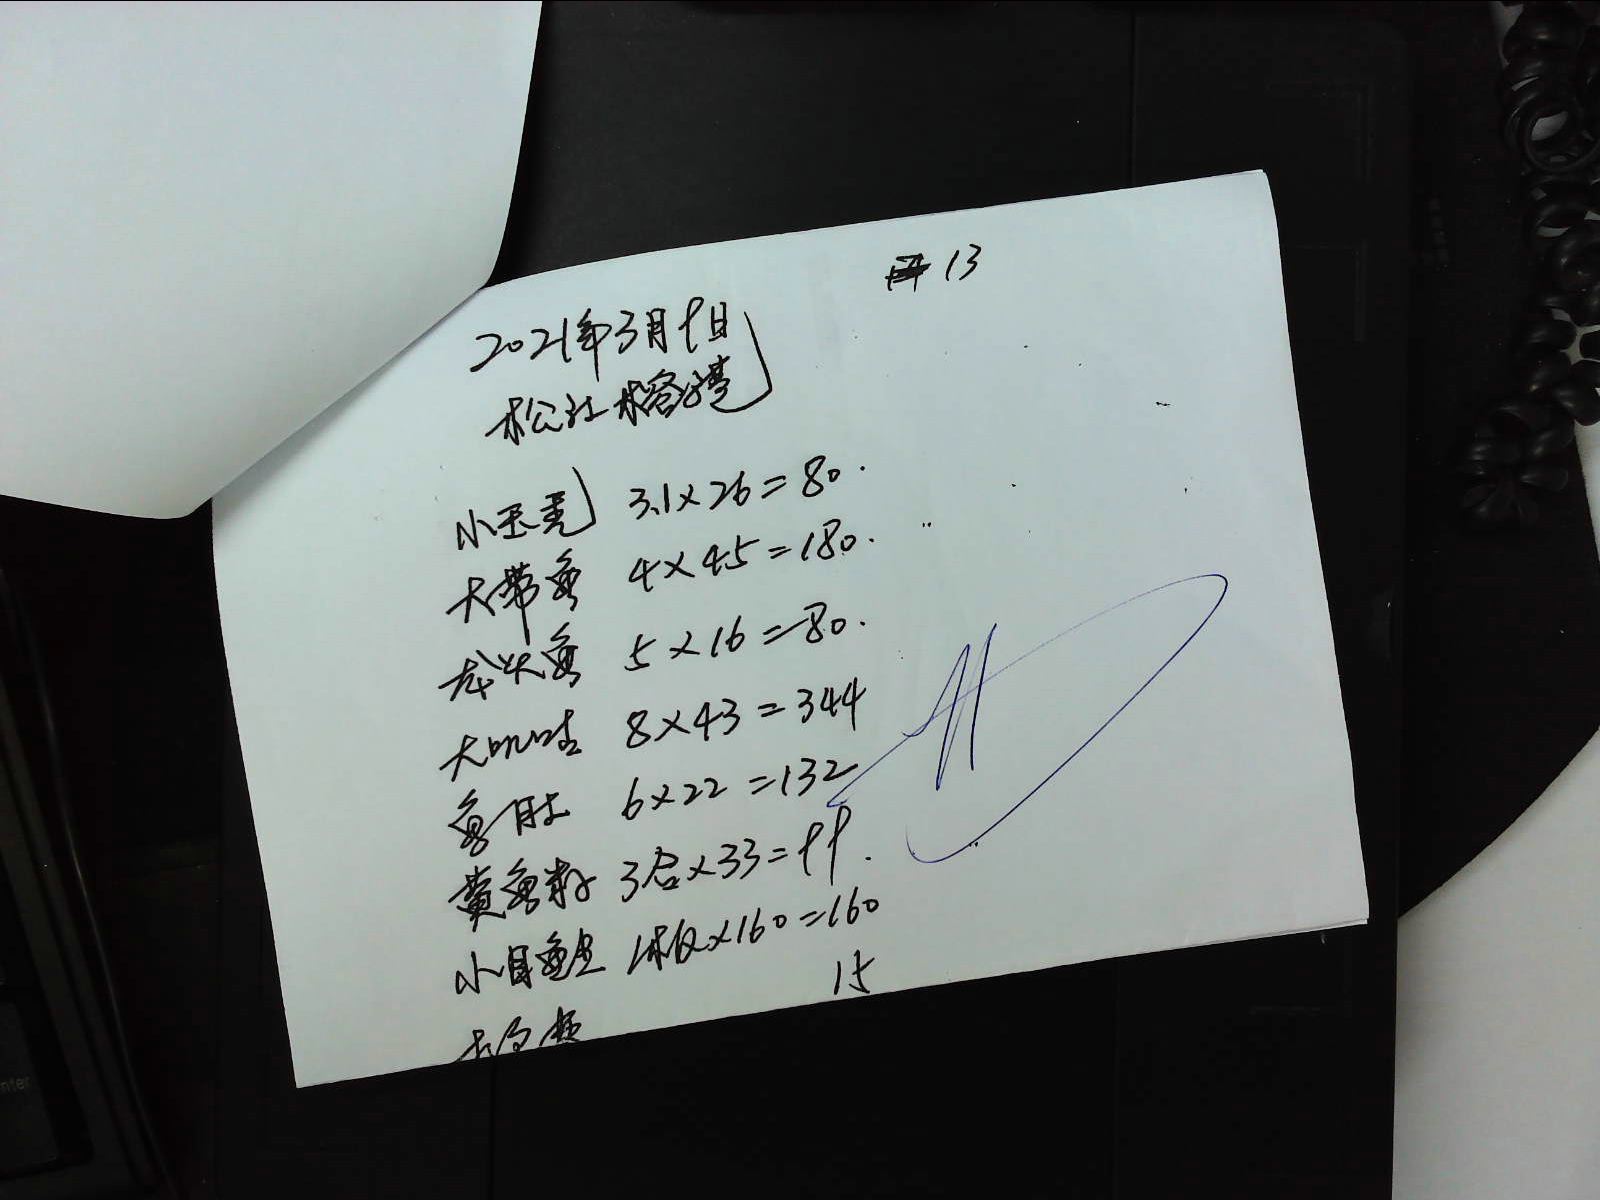 13
2021年3月9日
松江榕湾
小玉秃 3.1×26=80.
大带鱼 4×45=180.
龙头鱼 5×16=80.
大 8×43=344
鱼肚 6×22=132
黄鱼籽 3合×33=99.
小目鱼 1板×160=160
15